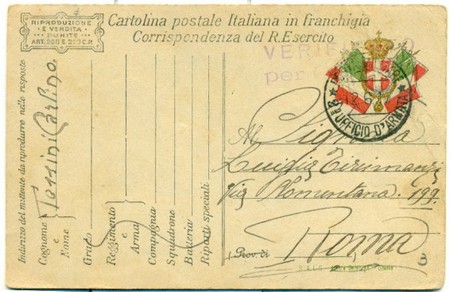 RIPRODUZIONE
E VENDITA
PUNITE
Cartolina postale Italiana in franchigia
Corrispondenza del R. Esercito
VERIF
per
UFFICIO D'ARMATA
Indirizzo del mittente da riprodurre nelle risposte
Cognome e Nome
Grado
Reggimento e Arma
Compagnia
Squadrone
Batteria
Riparti speciali
Carlino
Luigia
Via Nomentana. 199.
Roma
Prov. di
3